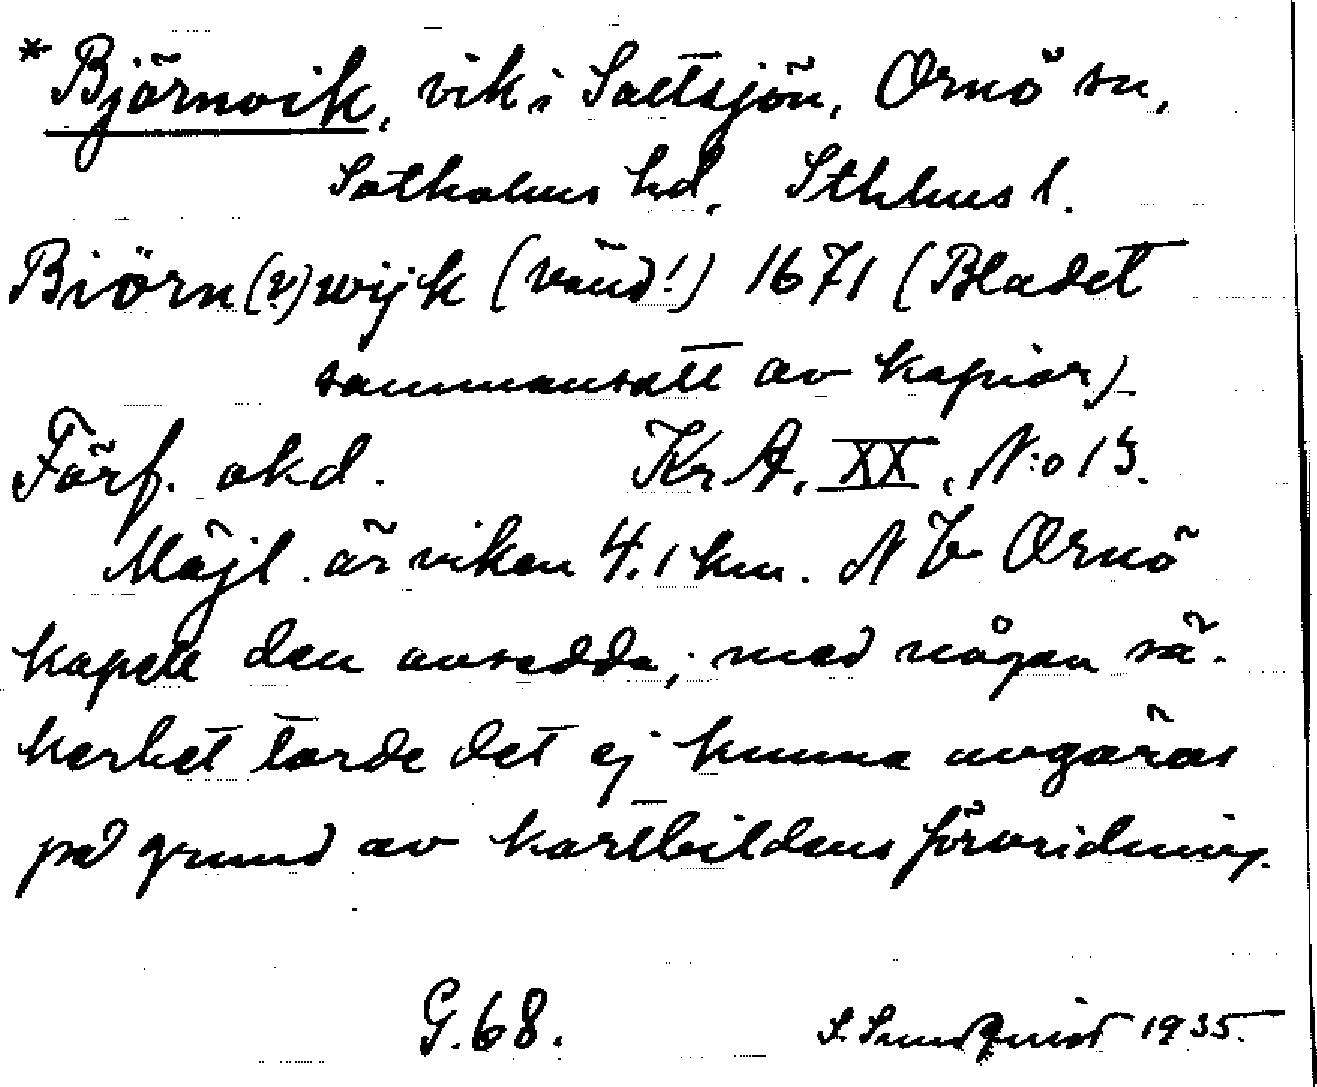 *Björnvik, vik i Saltsjön, Ornö sn,
Sotholms hd, Sthlms l.
Biörn(?)wijk (vänd!) 1671 (Bladet
sammansatt av kopior)
Förf. okd. Kr A, XX, N:o 13.
Möjl. är viken 4.1 km. N V Ornö
kapell den avsedda; med någon sä-
kerhet torde det ej kunna avgöras
på grund av kartbildens förvridning.
G.68. S. Sundquist 1935.